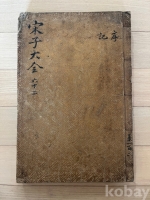 序
記
宋子大全 六十三
kobay